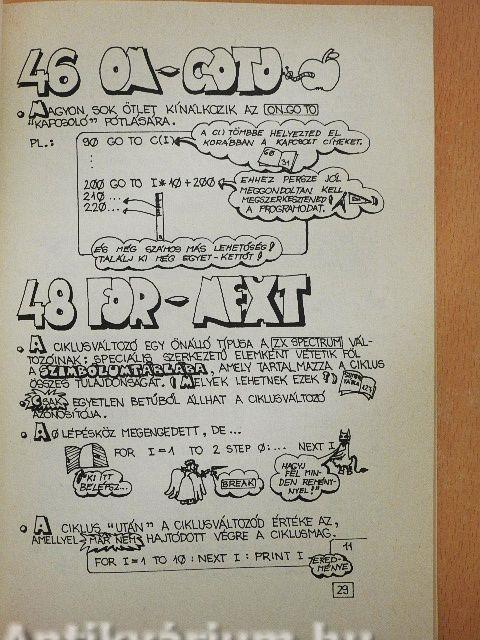 46 ON-GOTO
• NAGYON SOK ÖTLET KÍNÁLKOZIK AZ ON GO TO
"KAPCSOLÓ" PÓTLÁSÁRA.
PL.:
90 GO TO C(I)
A C() TÖMBBE HELYEZTED EL
KORÁBBAN A KAPCSOLT CÍMEKET.
60
31
200 GO TO I*10+200
210...
220...
EHHEZ PERSZE JÓL
MEGGONDOLTAN KELL
MEGSZERKESZTENED
A PROGRAMODAT.
ÉS MÉG SZÁMOS MÁS LEHETŐSÉG!
TALÁLJ KI MÉG EGYET-KETTŐT!
48 FOR-NEXT
• A CIKLUSVÁLTOZÓ EGY ÖNÁLLÓ TÍPUSA A ZX SPECTRUM VÁL-
TOZÓINAK: SPECIÁLIS SZERKEZETŰ ELEMKÉNT VÉTETIK FÖL
A SZIMBÓLUMTÁBLÁBA, AMELY TARTALMAZZA A CIKLUS
ÖSSZES TULAJDONSÁGÁT. (MELYEK LEHETNEK EZEK?)
• CSAK EGYETLEN BETŰBŐL ÁLLHAT A CIKLUSVÁLTOZÓ
AZONOSÍTÓJA.
• A 0 LÉPÉSKÖZ MEGENGEDETT, DE...
FOR I=1 TO 2 STEP 0:... NEXT I
"KI ITT
BELÉPSZ...
BREAK
HAGYJ
FEL MIN-
DEN REMÉNY-
NYEL!"
• A CIKLUS "UTÁN" A CIKLUSVÁLTOZÓD ÉRTÉKE AZ,
AMELLYEL MÁR NEM HAJTÓDOTT VÉGRE A CIKLUSMAG.
11
FOR I=1 TO 10:NEXT I:PRINT I
ERED-
MÉNYE
29
Antikvárium.hu